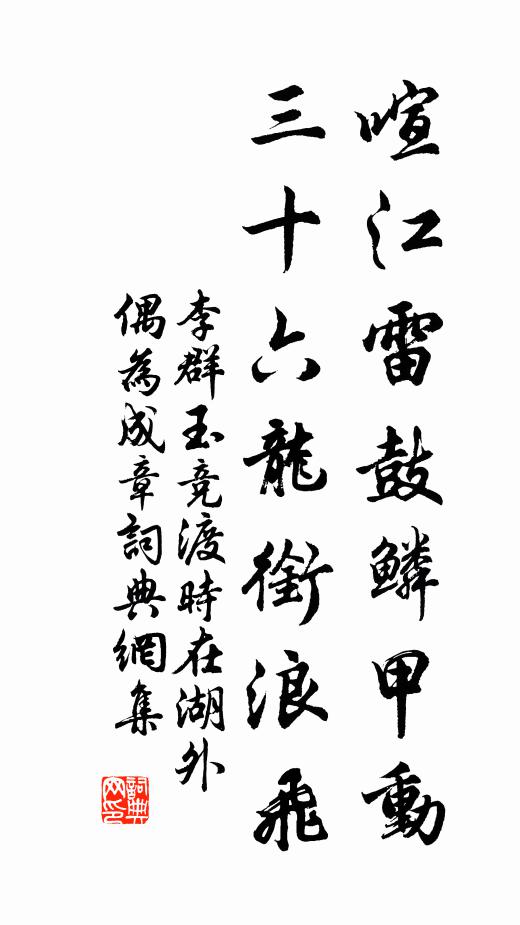 喧江雷鼓鱗甲動
三十六龍銜浪飛
李群玉竞渡時在湖外
偶為成章詞典網集
詞典
网印